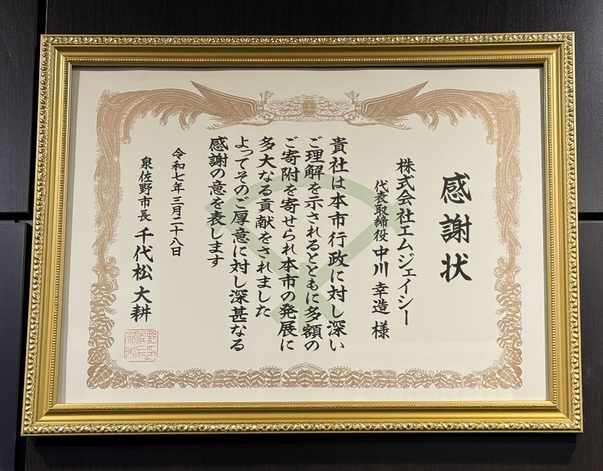 感謝状
株式会社エムジェイシー
代表取締役 中川 幸造 様
貴社は本市行政に対し深い
ご理解を示されるとともに多額の
ご寄附を寄せられ本市の発展に
多大なる貢献をされました
よってそのご厚意に対し深甚なる
感謝の意を表します
令和七年三月二十八日
泉佐野市長 千代松 大耕